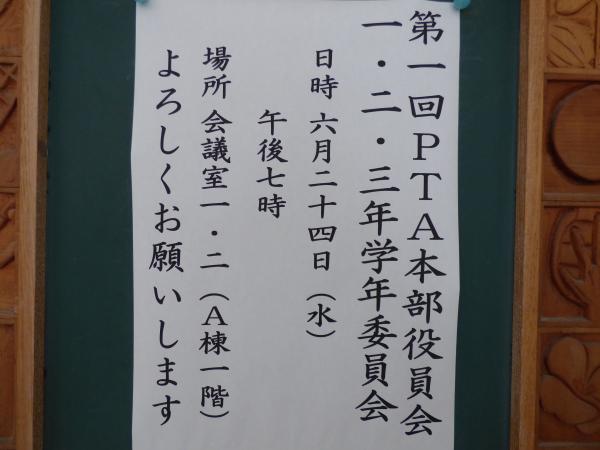 第一回PTA本部役員会
一・二・三年学年委員会
日時 六月二十四日（水）
午後七時
場所 会議室一・二（A棟一階）
よろしくお願いします